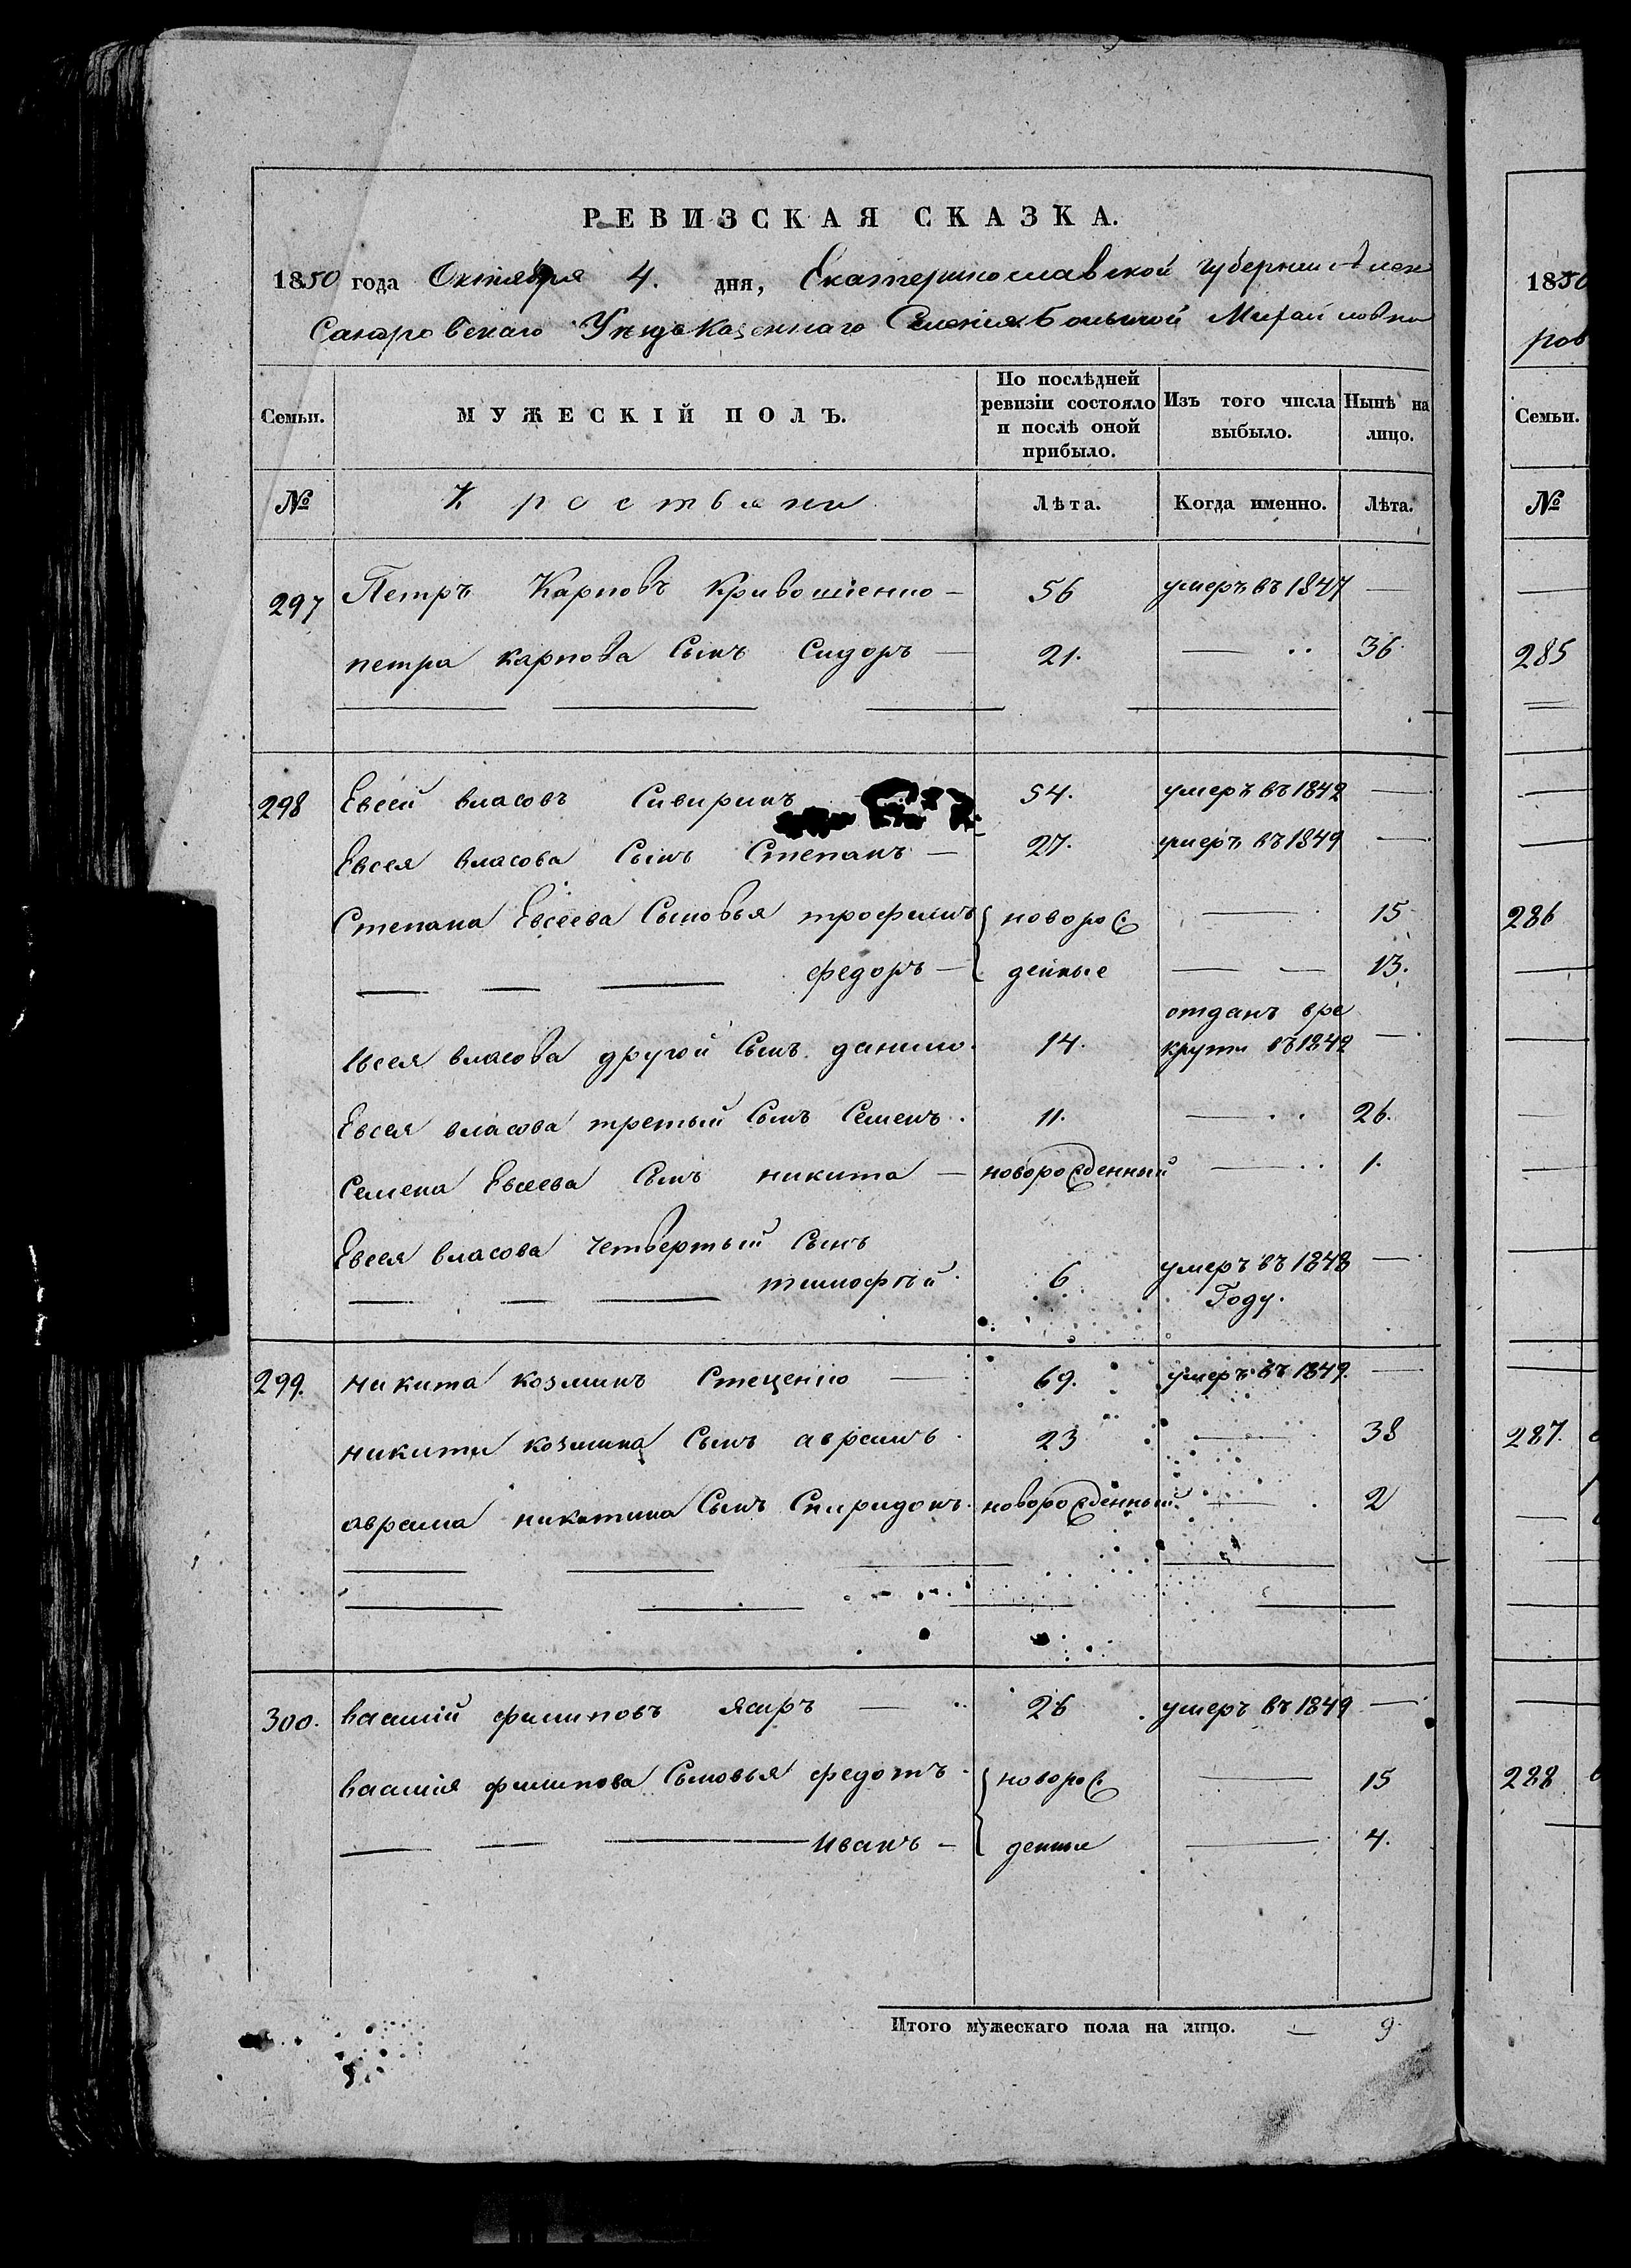 РЕВИЗСКАЯ СКАЗКА.
1850 года Октября 4. дня, Екатеринославской губернии Алек
сандровскаго Уезда Казеннаго Селения Большой Михайловки
Семьи. МУЖЕСКІЙ ПОЛЪ. По послѣдней ревизіи состояло и послѣ оной прибыло. Изъ того числа выбыло. Нынѣ на лицо.
№ Крестьяни Лѣта. Когда именно. Лѣта.
297 Петръ Карповъ Кривошіенко — 56 умеръ въ 1847 —
петра карпова Сынъ Сидоръ — 21. — 36.
298 Евсей власовъ Сивиринъ 54. умеръ въ 1842 —
Евсея власова Сынъ Степанъ — 27. умеръ въ 1849 —
Степана Евсеева Сыновья трофимъ новорос — 15
федоръ — денные — 13.
отданъ вре
Евсея власова другой Сынъ данило. 14. круты въ 1842 —
Евсея власова третьий Сынъ Семенъ. 11. — 26.
Семена Евсеева Сынъ никита — новоросденный — 1.
Евсея власова четвертый Сынъ
тимофѣй. 6 умеръ въ 1848 —
Году.
299. никита козминъ Стеценко — 69. умеръ въ 1849. —
никиты козмина Сынъ аврамъ. 23 — 38
аврама никитина Сынъ Спиридонъ. новоросденный — 2
300. василій филиповъ Ясиръ — 26 умеръ въ 1849 —
василія филипова Сыновья федотъ новорос — 15
Иванъ — денные — 4.
Итого мужескаго пола на лицо. — 9.
1850
ров
Семьи.
№
285
286
287.
288